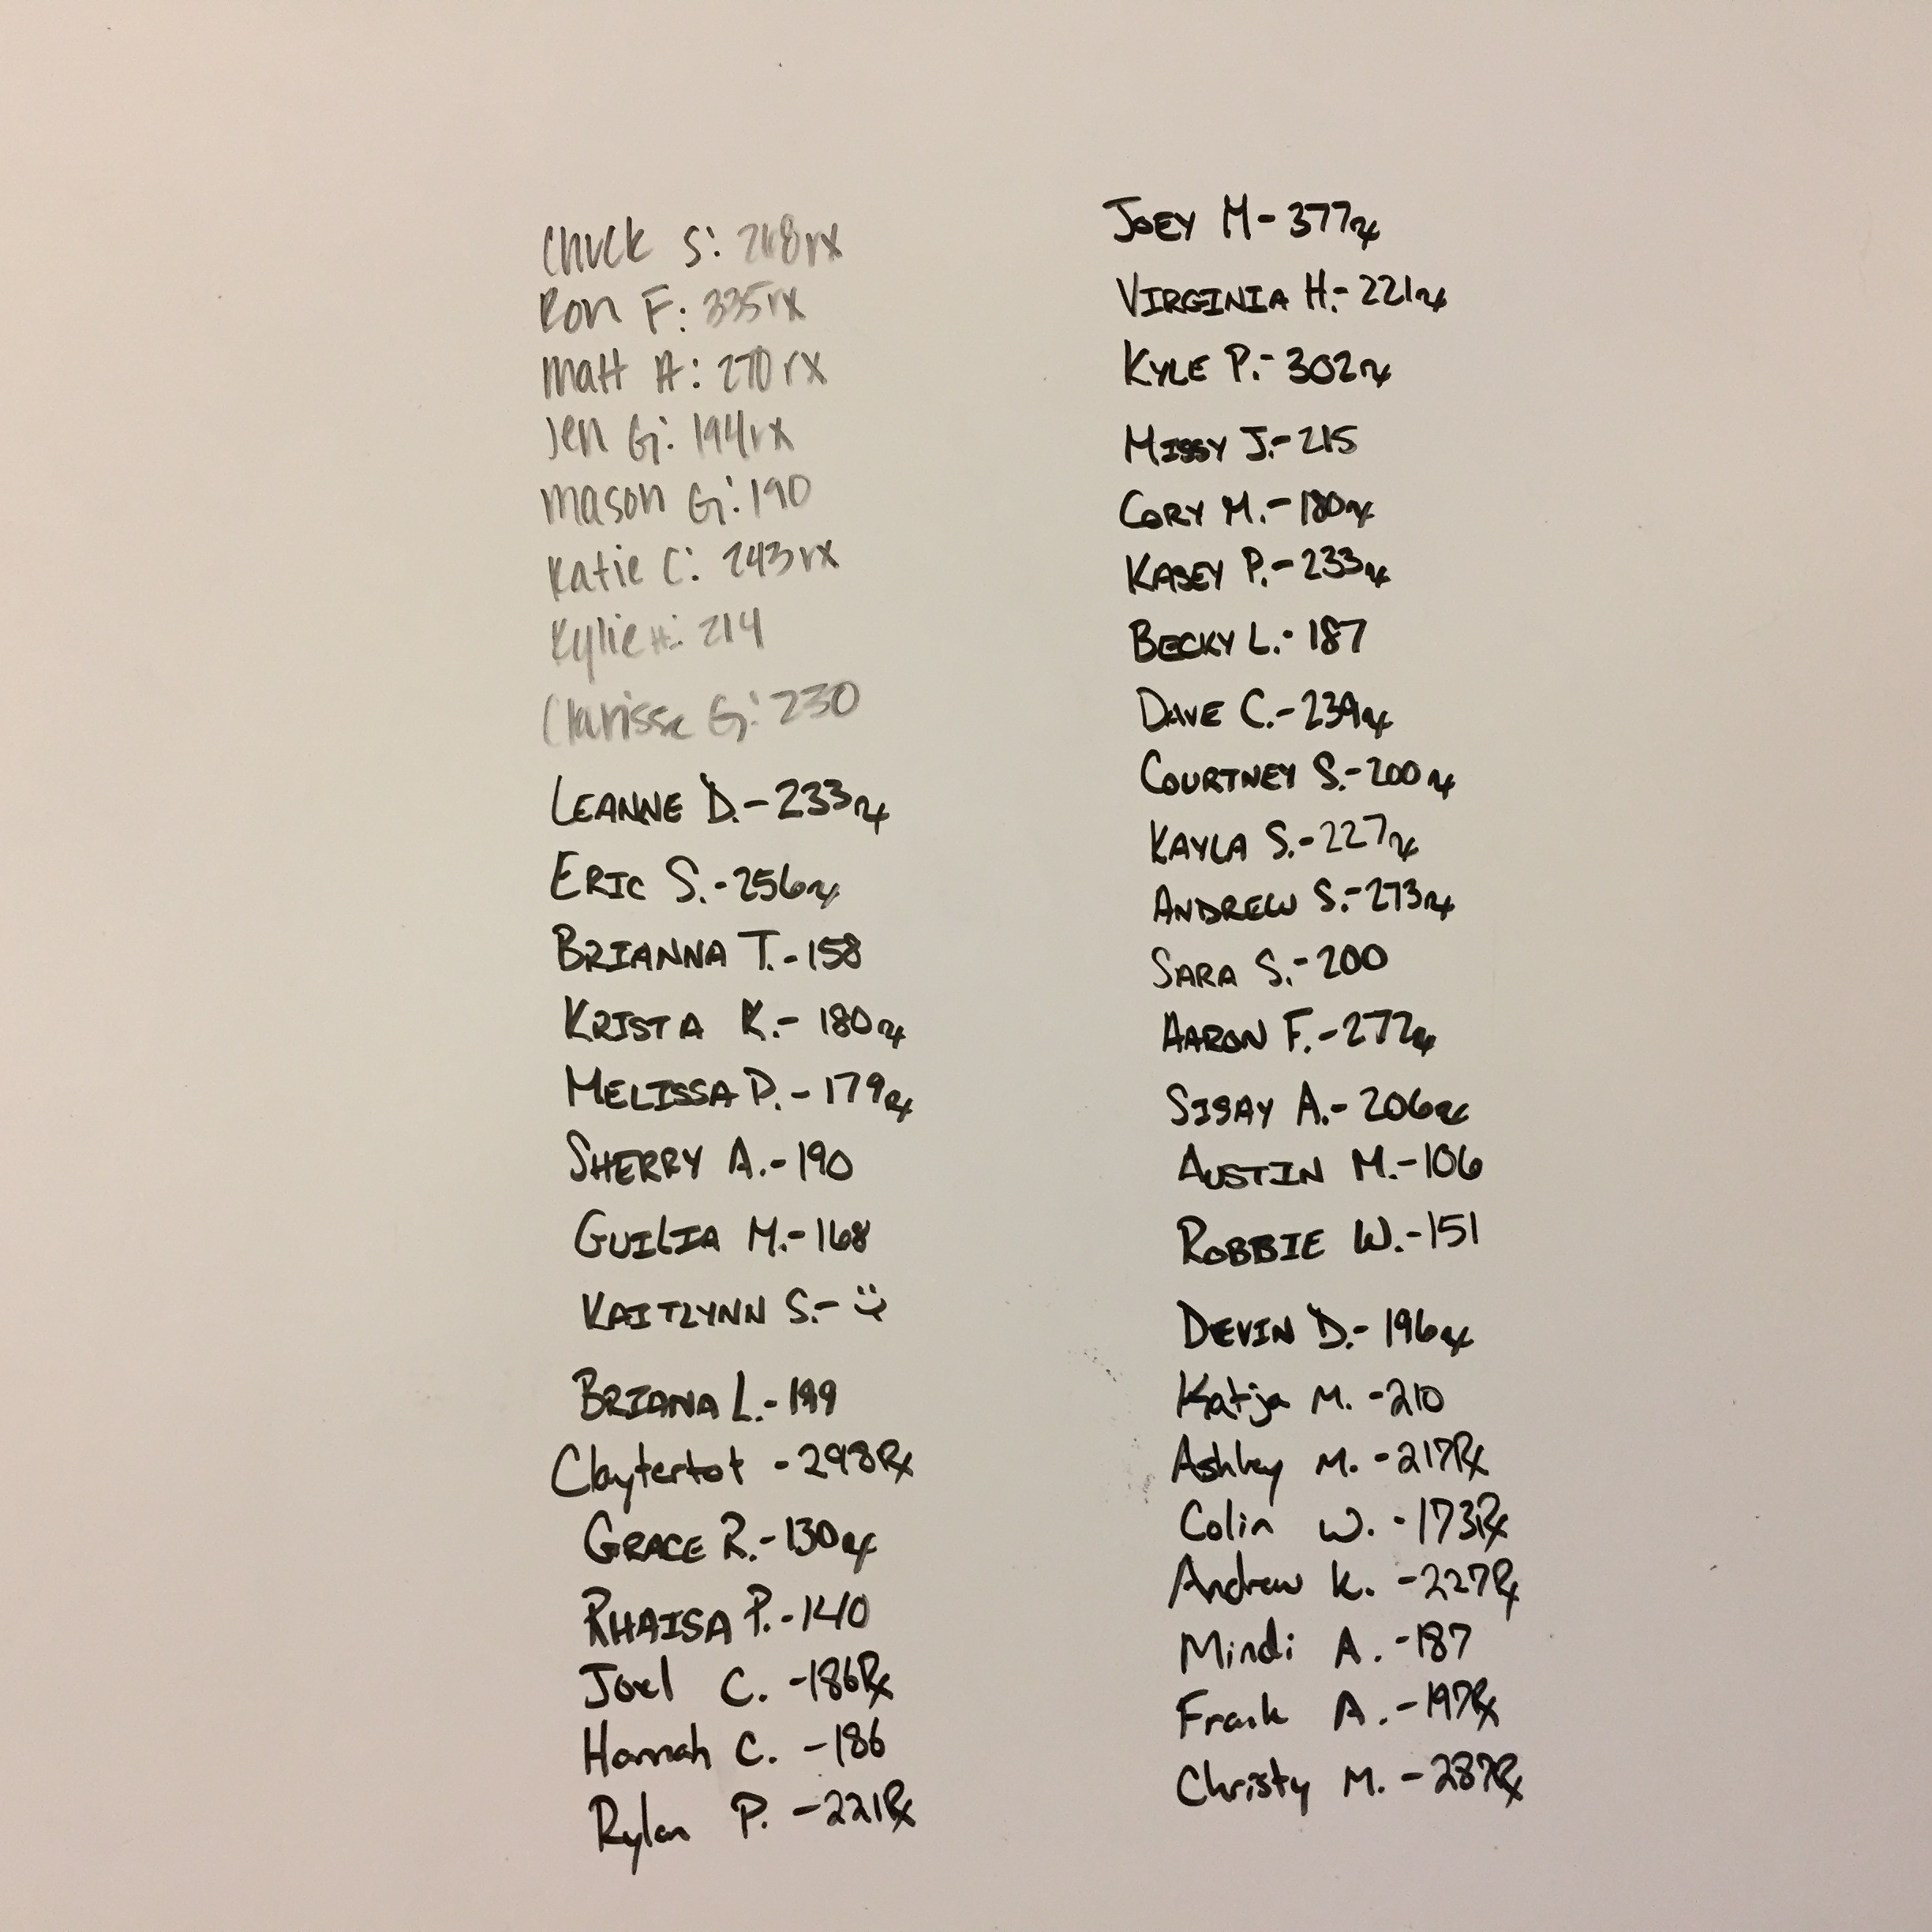 Chuck S: 248rx
Ron F: 335rx
Matt A: 270rx
Jen G: 194rx
Mason G: 190
Katie C: 243rx
Kylie H: 214
Clarisse G: 230
LEANNE D.- 233rx
ERIC S.- 256rx
BRIANNA T.- 158
KRISTA K.- 180rx
MELISSA P.- 179rx
SHERRY A.- 190
GUILIA M.- 168
KAITLYNN S.- :)
BRIANA L.- 199
Claytertot - 298Rx
GRACE R.- 130rx
RHAISA P.- 140
Joel C. -186Rx
Hannah C. -186
Rylan P. -221Rx
JOEY M- 377rx
VIRGINIA H.- 221rx
KYLE P.- 302rx
MISSY J.- 215
CORY M.- 180rx
KASEY P.- 233rx
BECKY L.- 187
DAVE C.- 234rx
COURTNEY S.- 200rx
KAYLA S.- 227rx
ANDREW S.- 273rx
SARA S.- 200
AARON F.- 272rx
SISAY A.- 206rx
AUSTIN M.- 106
ROBBIE W.- 151
DEVIN D.- 196rx
Katja M. -210
Ashley M. -217Rx
Colin W. -173Rx
Andrew K. -227Rx
Mindi A. -187
Frank A. -197Rx
Christy M. -287Rx